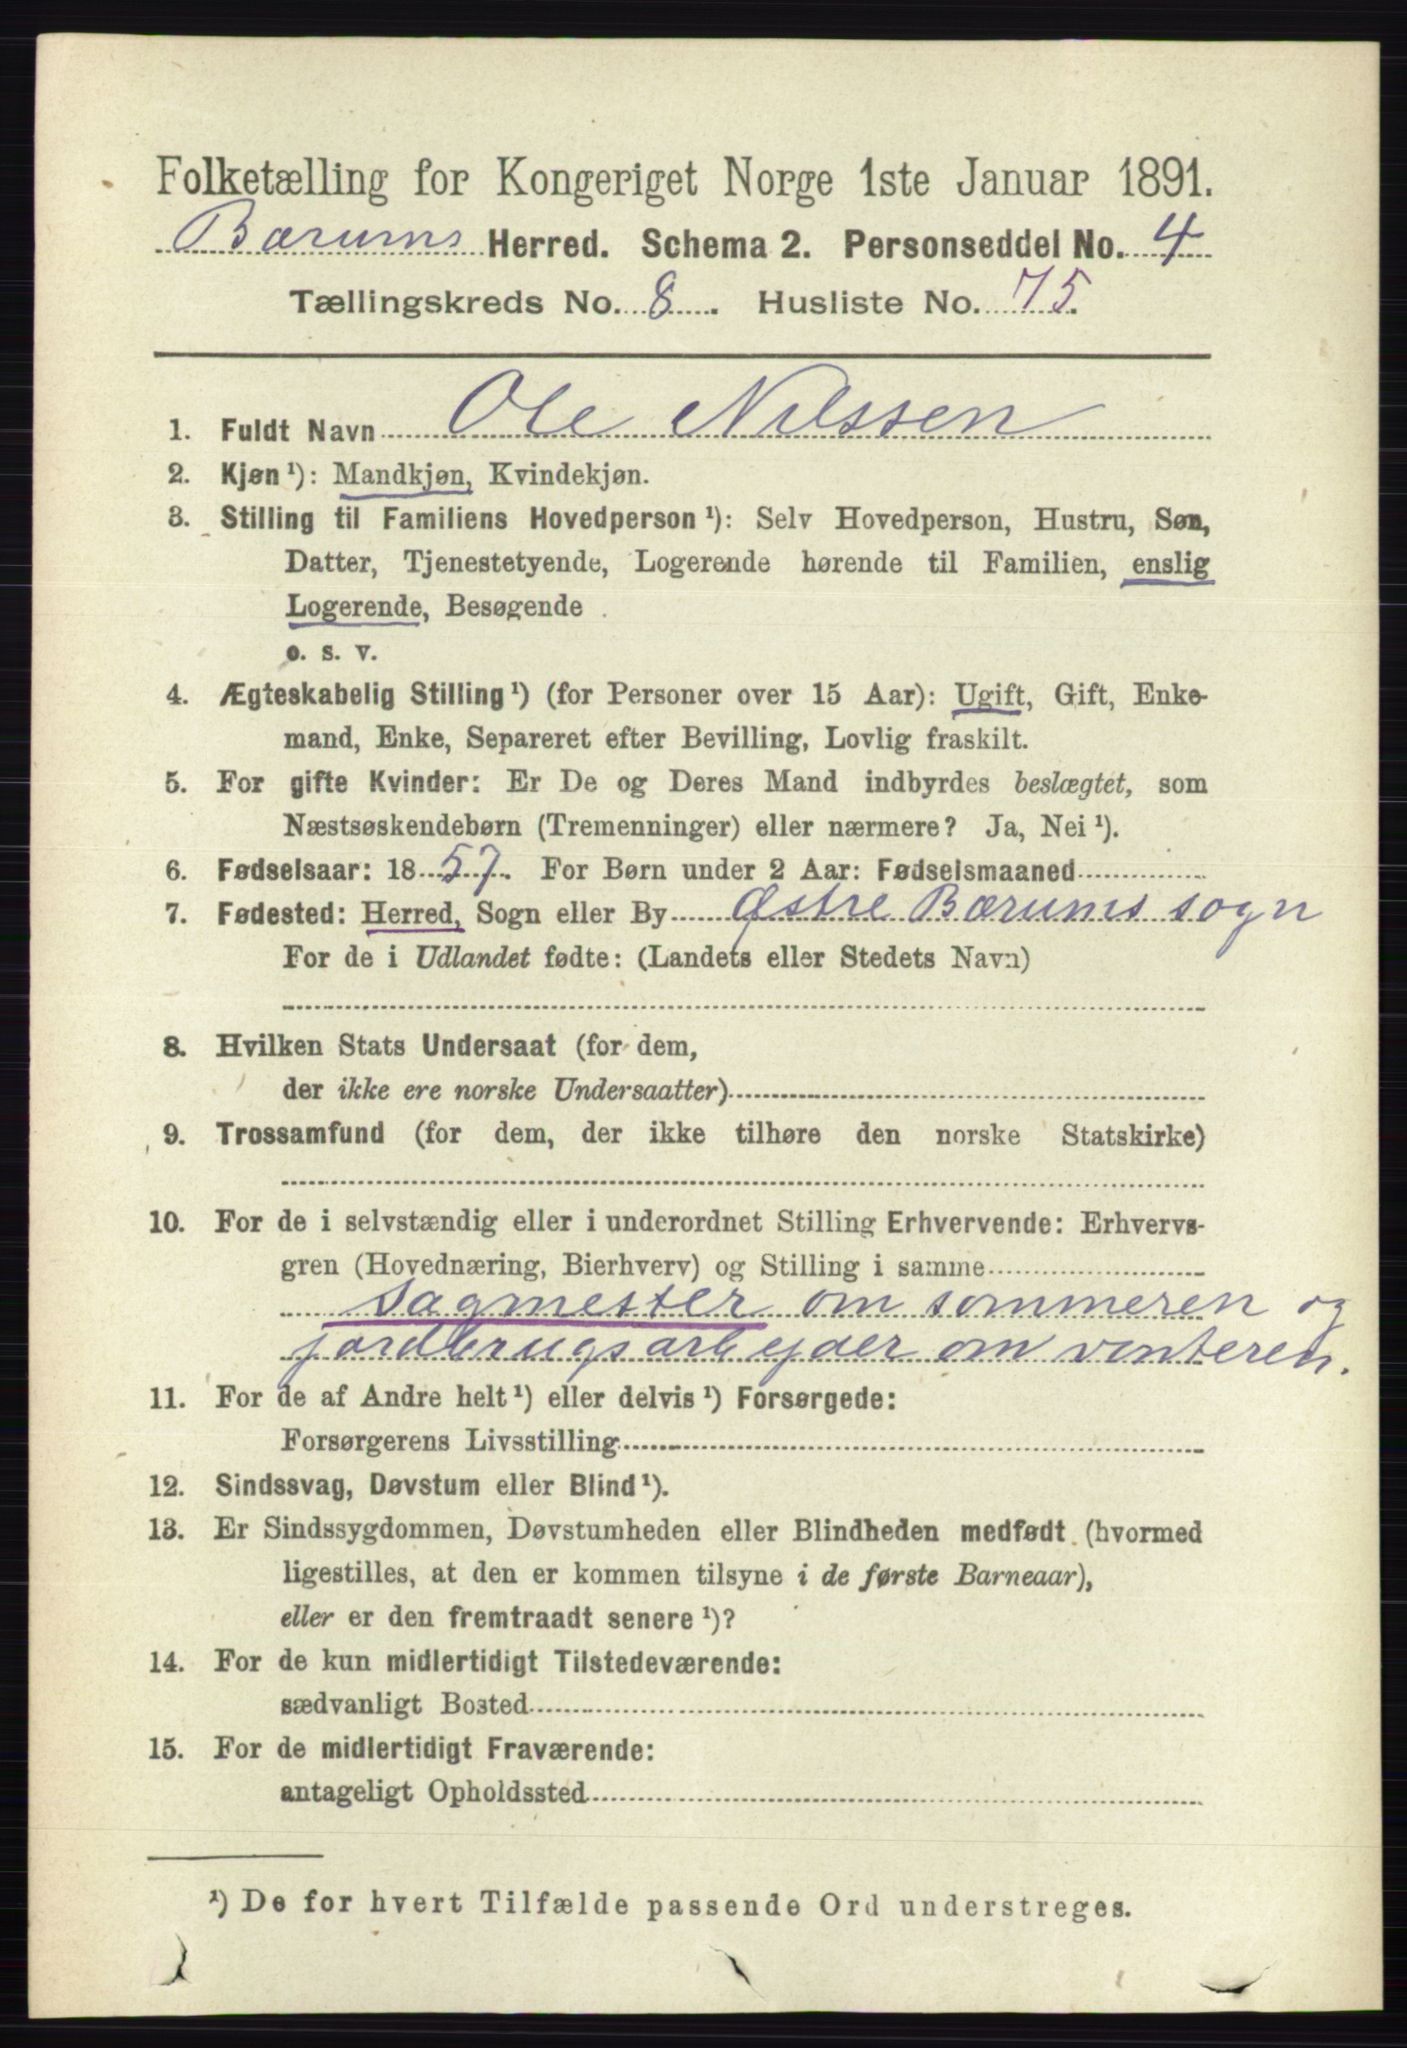 Folketælling for Kongeriget Norge 1ste Januar 1891.
Bærums Herred. Schema 2. Personseddel No. 4
Tællingskreds No. 8. Husliste No. 75.
1. Fuldt Navn Ole Nilssen
2. Kjøn ¹): Mandkjøn, Kvindekjøn.
3. Stilling til Familiens Hovedperson ¹): Selv Hovedperson, Hustru, Søn,
Datter, Tjenestetyende, Logerende hørende til Familien, enslig
Logerende, Besøgende
o. s. v.
4. Ægteskabelig Stilling ¹) (for Personer over 15 Aar): Ugift, Gift, Enke-
mand, Enke, Separeret efter Bevilling, Lovlig fraskilt.
5. For gifte Kvinder: Er De og Deres Mand indbyrdes beslægtet, som
Næstsøskendebørn (Tremenninger) eller nærmere? Ja, Nei ¹).
6. Fødselsaar: 1857. For Børn under 2 Aar: Fødselsmaaned
7. Fødested: Herred, Sogn eller By Østre Bærums sogn
For de i Udlandet fødte: (Landets eller Stedets Navn)
8. Hvilken Stats Undersaat (for dem,
der ikke ere norske Undersaatter)
9. Trossamfund (for dem, der ikke tilhøre den norske Statskirke)
10. For de i selvstændig eller i underordnet Stilling Erhvervende: Erhvervs-
gren (Hovednæring, Bierhverv) og Stilling i samme
sagmester om sommeren og
jordbrugsarbejder om vinteren.
11. For de af Andre helt ¹) eller delvis ¹) Forsørgede:
Forsørgerens Livsstilling
12. Sindssvag, Døvstum eller Blind ¹).
13. Er Sindssygdommen, Døvstumheden eller Blindheden medfødt (hvormed
ligestilles, at den er kommen tilsyne i de første Barneaar),
eller er den fremtraadt senere ¹)?
14. For de kun midlertidigt Tilstedeværende:
sædvanligt Bosted
15. For de midlertidigt Fraværende:
antageligt Opholdssted
¹) De for hvert Tilfælde passende Ord understreges.